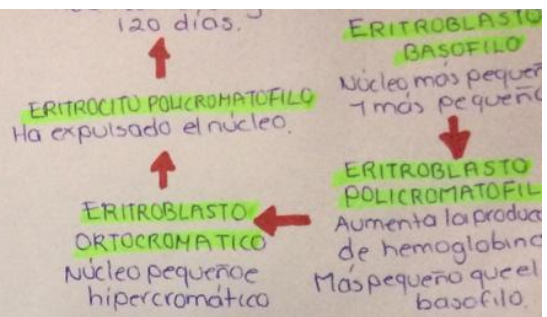 120 días.
ERITROCITO POLICROMATOFILO
Ha expulsado el núcleo.
ERITROBLASTO
ORTOCROMATICO
Núcleo pequeño e
hipercromático
ERITROBLASTO
BASOFILO
Núcleo más pequeñ
y más pequeño
ERITROBLASTO
POLICROMATOFIL
Aumenta la produc
de hemoglobina
Más pequeño que el
basofilo.